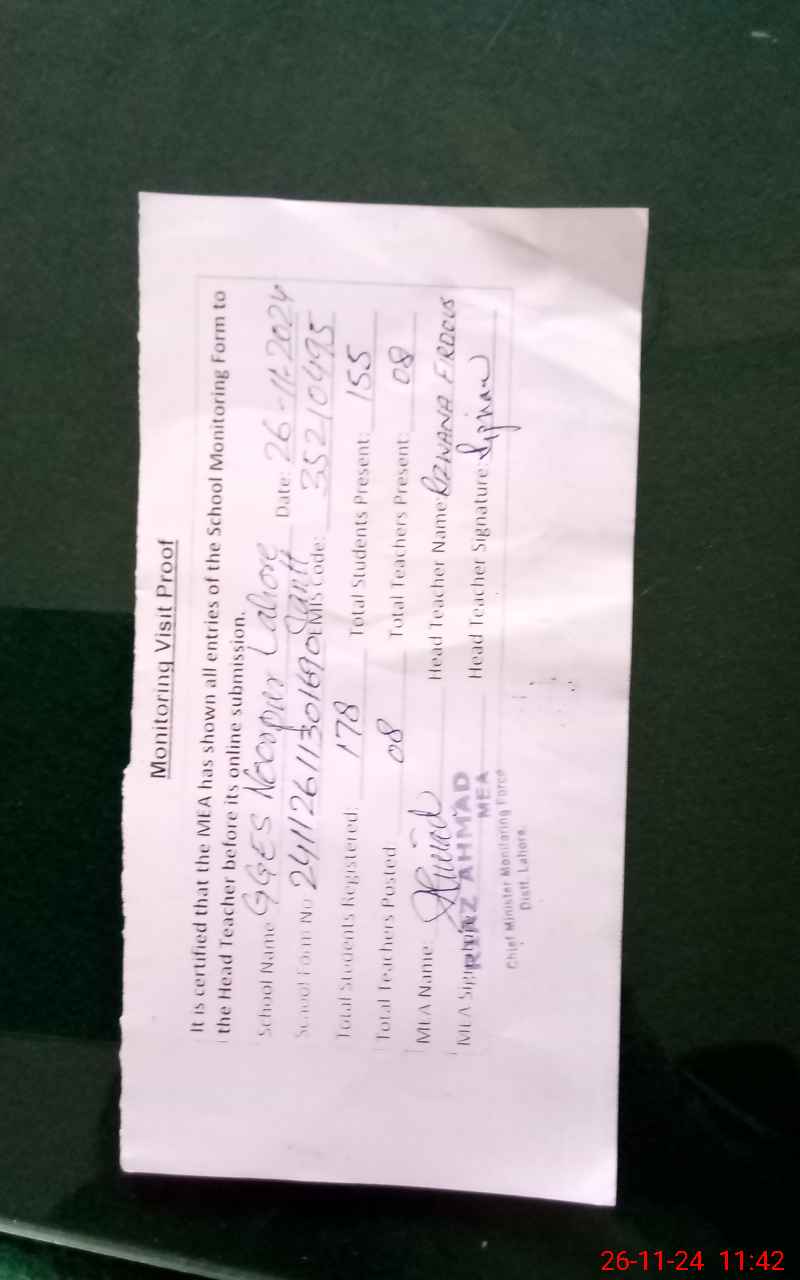 Monitoring Visit Proof
It is certified that the MEA has shown all entries of the School Monitoring Form to
the Head Teacher before its online submission.
School Name GGES Noorpur Lahore Date: 26-11-2024
Cantt
School Form No 24112611301690 EMIS Code: 35210495
Total Students Registered: 178 Total Students Present: 155
Total Teachers Posted: 08 Total Teachers Present: 08
MEA Name: Head Teacher Name: RIZWANA FIRDOUS
MEA Signature Head Teacher Signature:
RIAZ AHMAD
MEA
Chief Minister Monitoring Force
Distt. Lahore.
26-11-24 11:42